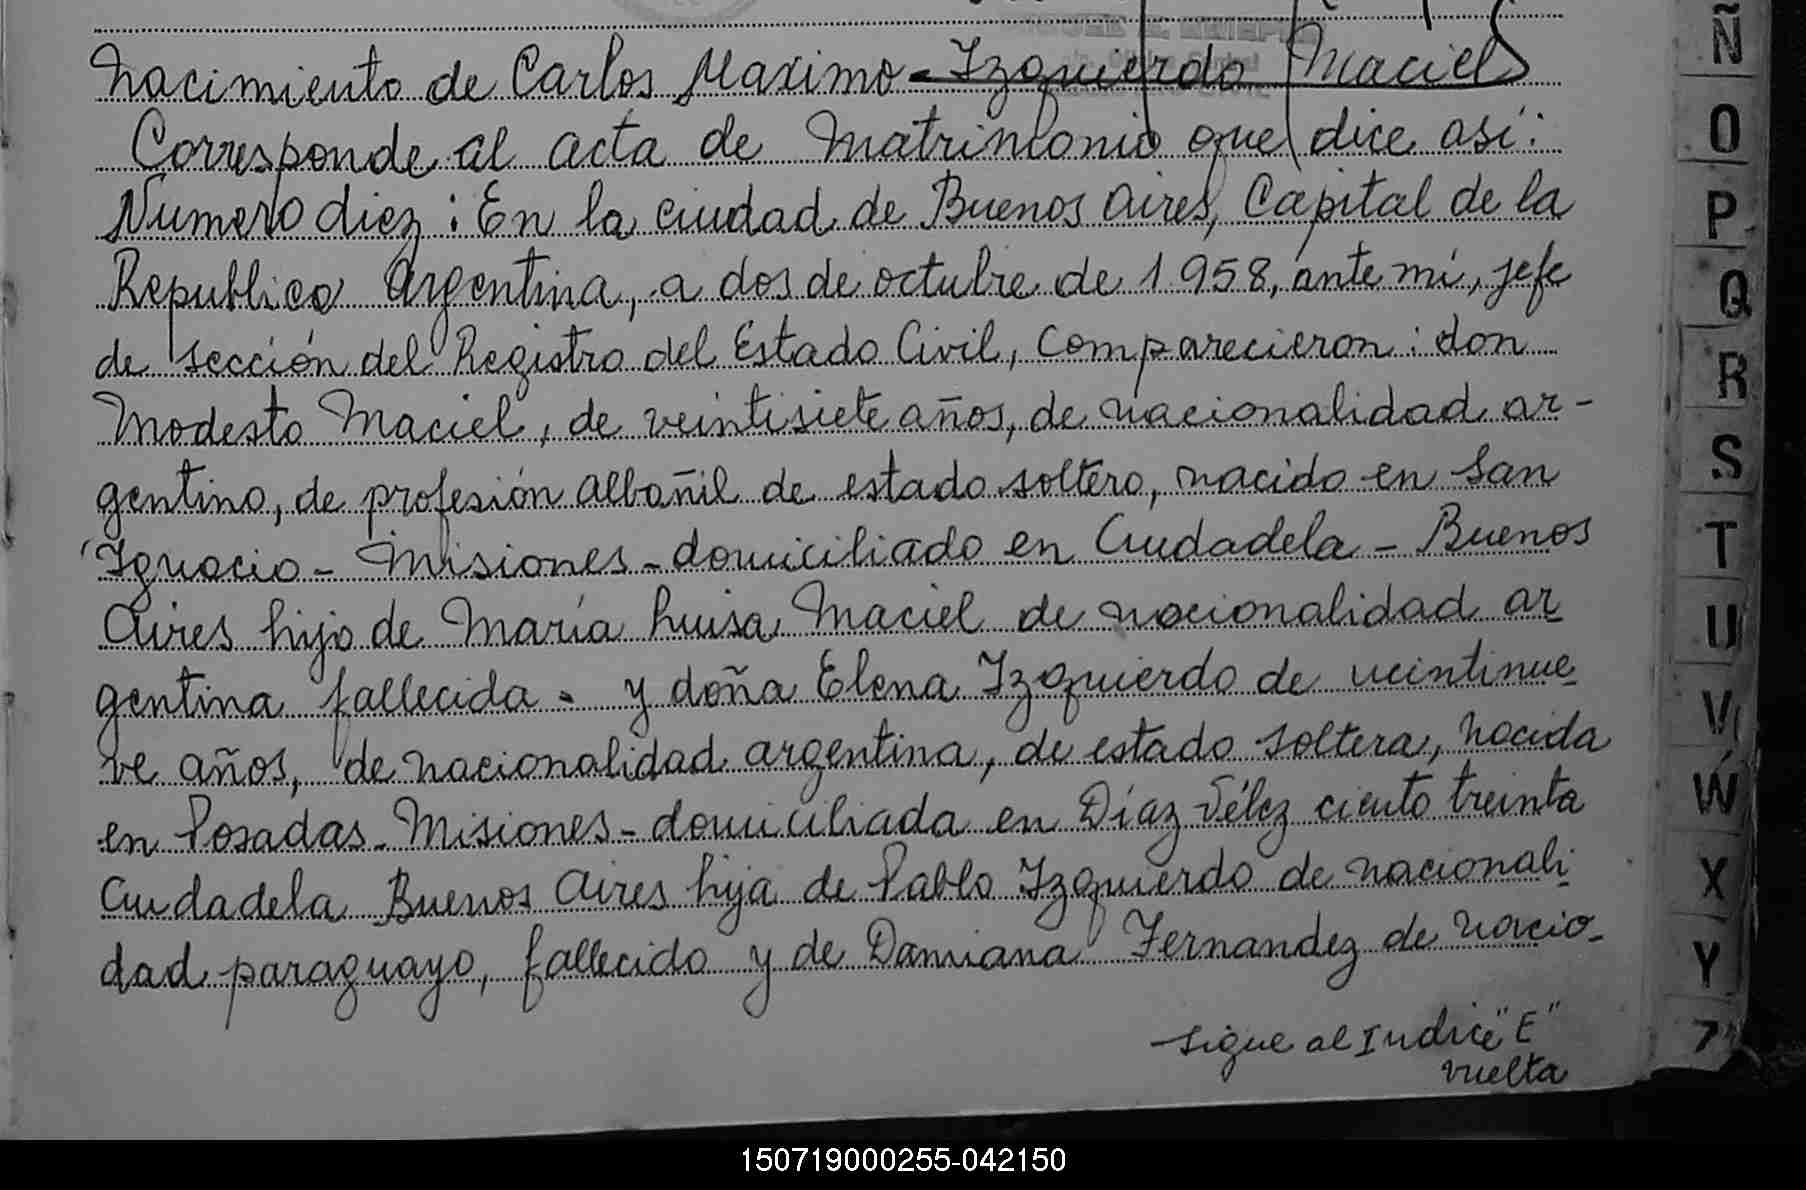 nacimiento de Carlos Maximo - Izquierdo Maciel
Corresponde al acta de Matrimonio que dice así:
Numero diez: En la ciudad de Buenos Aires, Capital de la
Republica Argentina, a dos de octubre de 1958, ante mí, jefe
de sección del Registro del Estado Civil, Comparecieron: don
Modesto Maciel, de veintisiete años, de nacionalidad ar-
gentino, de profesión albañil de estado soltero, nacido en San
Ignacio - Misiones - domiciliado en Ciudadela - Buenos
Aires hijo de María Luisa Maciel de nacionalidad ar
gentina fallecida - y doña Elena Izquierdo de veintinue-
ve años, de nacionalidad argentina, de estado soltera, nacida
en Posadas - Misiones - domiciliada en Díaz Vélez ciento treinta
Ciudadela Buenos Aires hija de Pablo Izquierdo de nacionali-
dad paraguayo, fallecido y de Damiana Fernandez de nacio-
sigue al Indice "E"
vuelta
Ñ
O
P
Q
R
S
T
U
V
W
X
Y
Z
150719000255-042150